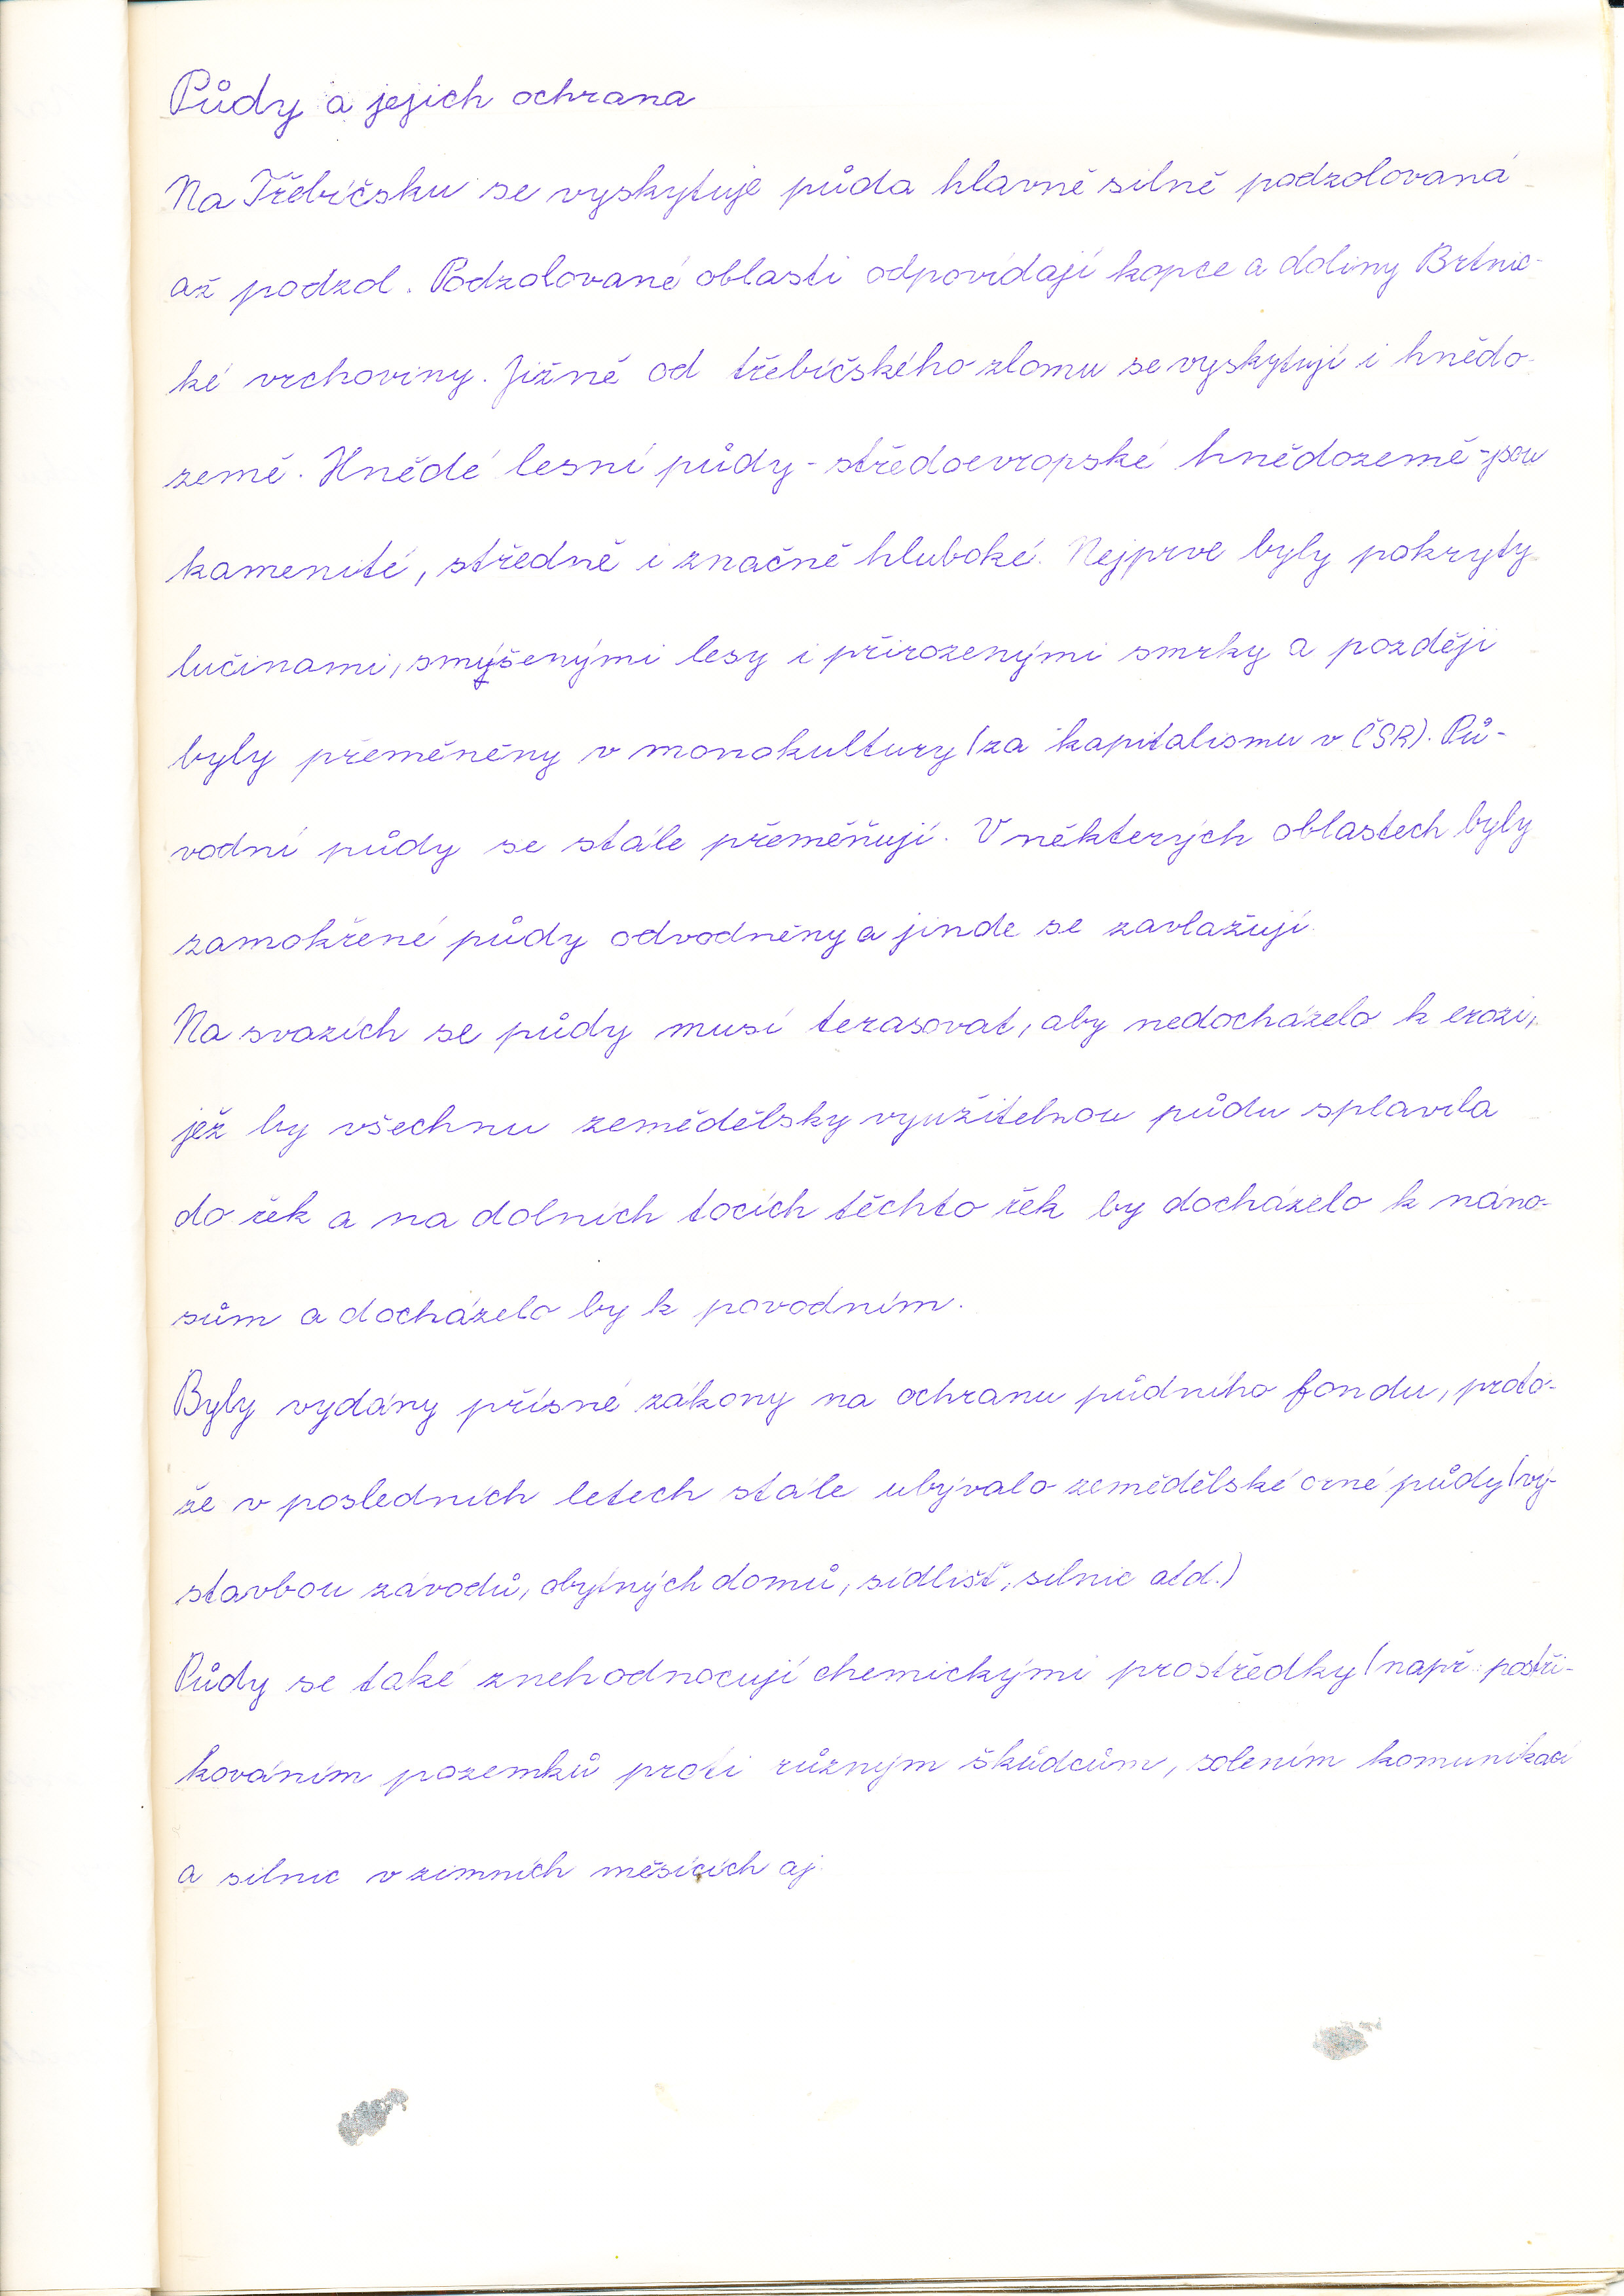 Půdy a jejich ochrana
Na Třebíčsku se vyskytuje půda hlavně silně podzolovaná
až podzol. Podzolované oblasti odpovídají kopce a doliny Brtnic-
ké vrchoviny. Jižně od třebíčského zlomu se vyskytují i hnědo-
země. Hnědé lesní půdy - středoevropské hnědozemě - jsou
kamenité, středně i značně hluboké. Nejprve byly pokryty
lučinami, smýšenými lesy i přirozenými smrky a později
byly přeměněny v monokultury (za kapitalismu v ČSR). Pů-
vodní půdy se stále přeměňují. V některých oblastech byly
zamokřené půdy odvodněny a jinde se zavlažují.
Na svazích se půdy musí terasovat, aby nedocházelo k erozi,
jež by všechnu zemědělsky využitelnou půdu splavila
do řek a na dolních tocích těchto řek by docházelo k náno-
sům a docházelo by k povodním.
Byly vydány přísné zákony na ochranu půdního fondu, proto-
že v posledních letech stále ubývalo zemědělské orné půdy (vý-
stavbou závodů, obytných domů, sídlišť, silnic atd.)
Půdy se také znehodnocují chemickými prostředky (např.: postři-
kováním pozemků proti různým škůdcům, solením komunikací
a silnic v zimních měsících aj.